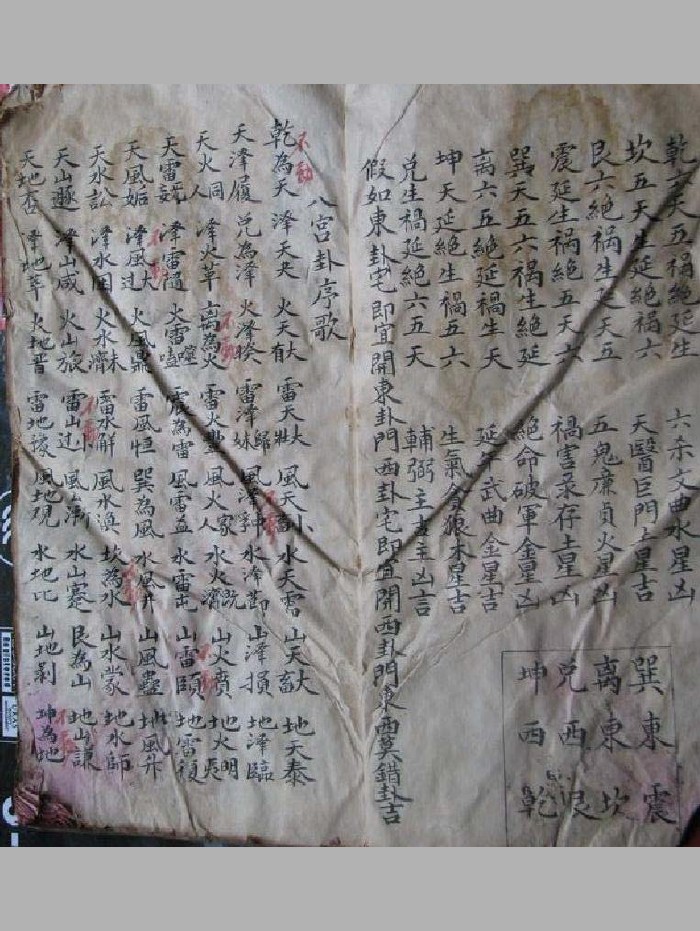 乾六天五禍絕延生
坎五天生延絕禍六
艮六絕禍生延天五
震延生禍絕五天六
巽天五六禍生絕延
离六五絕延禍生天
坤天延絕生禍五六
兌生禍延絕六五天
六杀文曲水星凶
天醫巨門土星吉
五鬼廉貞火星凶
禍害录存土星凶
絕命破軍金星凶
延年武曲金星吉
生氣貪狼木星吉
輔弼主吉主凶吉
巽東震
离東坎
兌西艮
坤西乾
假如東卦宅即宜開東卦門西卦宅即宜開西卦門東西莫錯卦吉
八宮卦序歌
不動
乾為天 澤天夬 火天大有 雷天大壯 風天小畜 水天需 山天大畜 地天泰
天澤履 兌為澤 火澤睽 雷澤歸妹 風澤中孚 水澤節 山澤損 地澤臨
天火同人 澤火革 离為火 雷火豐 風火家人 水火既濟 山火賁 地火明夷
天雷无妄 澤雷隨 火雷噬嗑 震為雷 風雷益 水雷屯 山雷頤 地雷復
天風姤 澤風大过 火風鼎 雷風恒 巽為風 水風井 山風蠱 地風升
天水訟 澤水困 火水未濟 雷水解 風水渙 坎為水 山水蒙 地水師
天山遯 澤山咸 火山旅 雷山小过 風山漸 水山蹇 艮為山 地山謙
天地否 澤地萃 火地晋 雷地豫 風地观 水地比 山地剝 坤為地